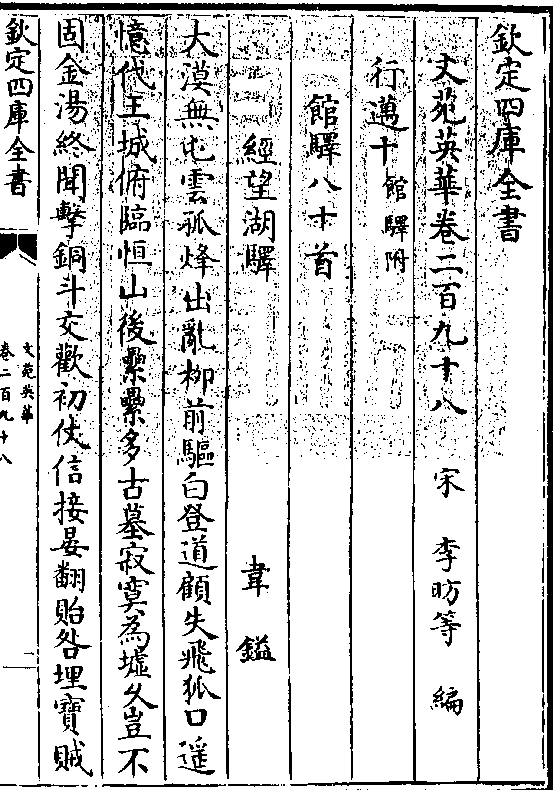 欽定四庫全書
文苑英華卷二百九十八　宋　李昉等　編
行邁十館驛附
館驛八十首
經望湖驛　韋鎰
大漠無屯雲孤烽出亂柳前驅白登道顧失飛狐口遥
憶代王城俯臨恒山後纍纍多古墓寂寞為墟久豈不
固金湯終聞擊銅斗交歡初仗信接晏翻貽咎埋寶賊
欽定四庫全書
文苑英華
卷二百九十八
一